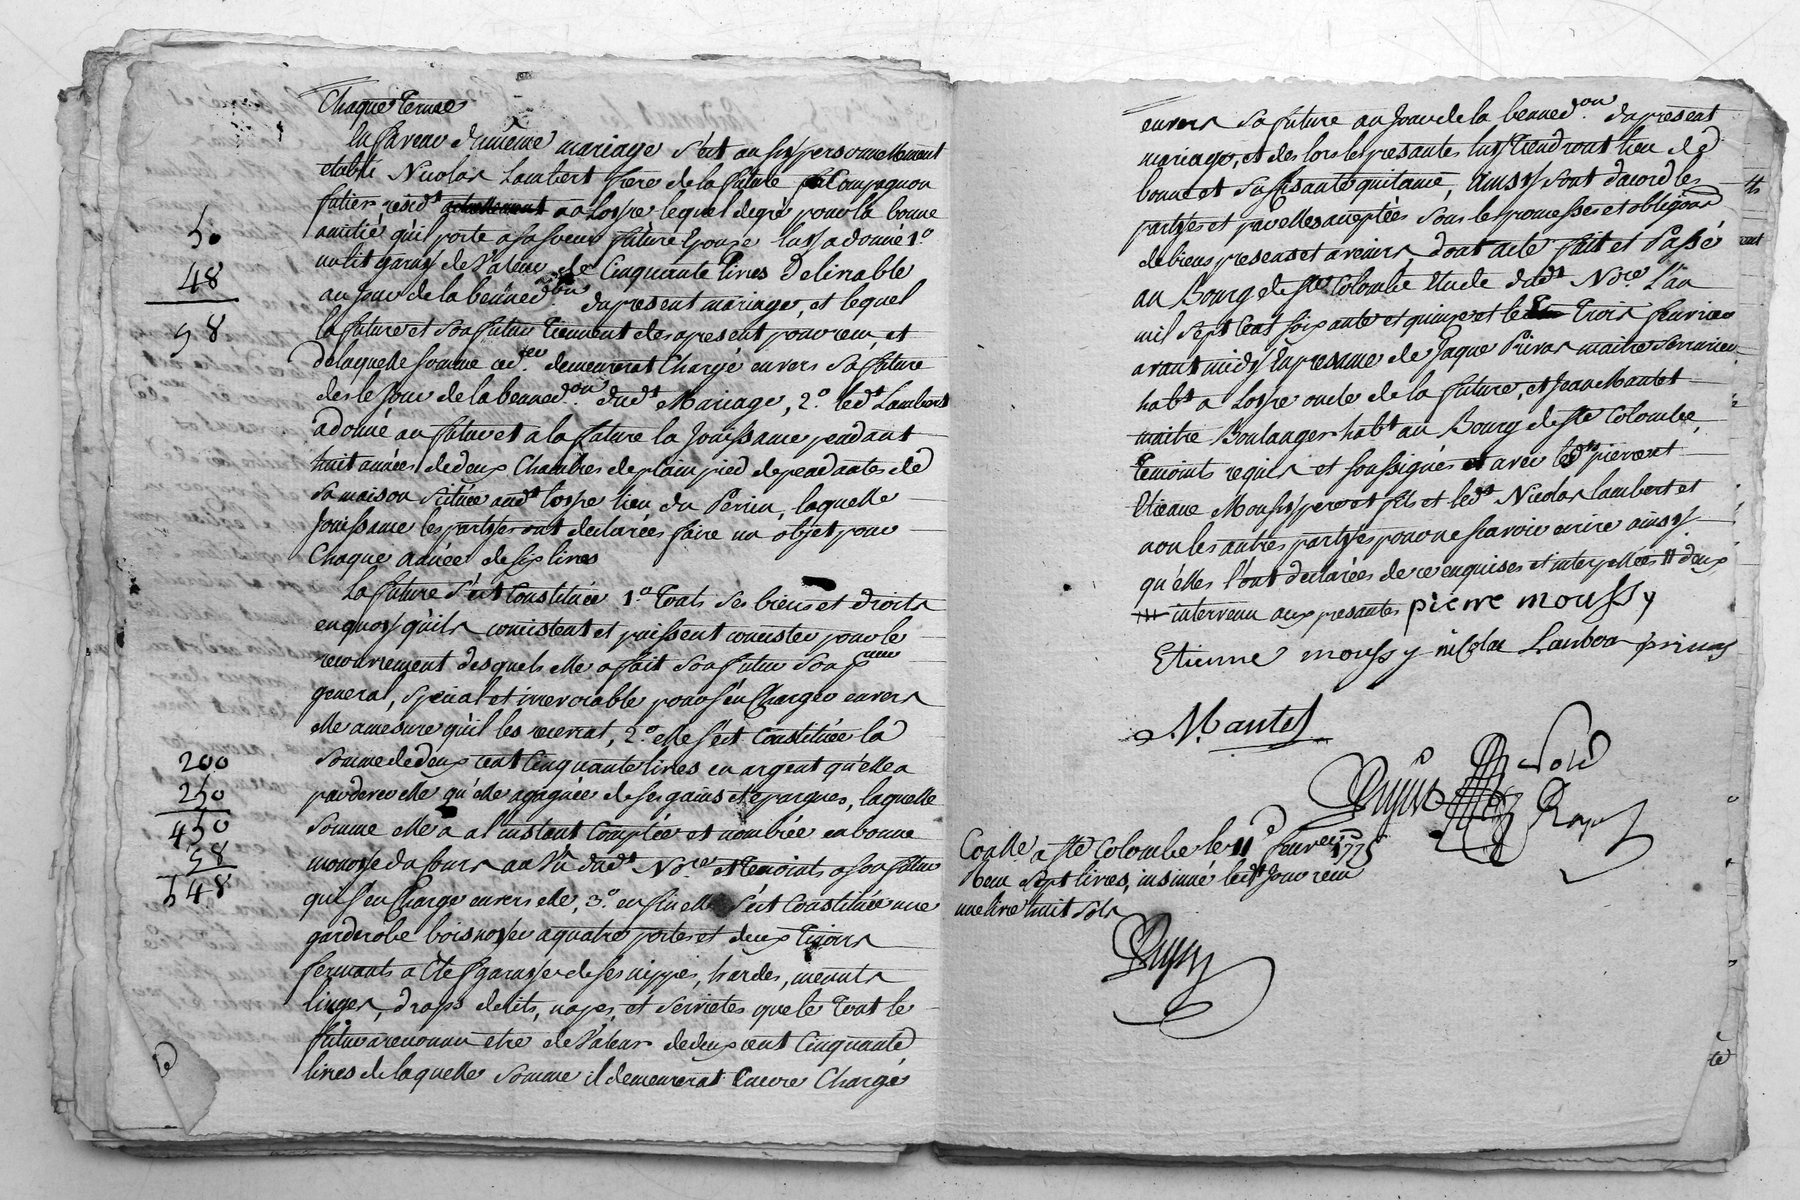 Chaque terme
En faveur dumême mariage s'est aussy personnellement
etabli Nicolas Lambert frere de la future Compagnon
futier resid.t a Lospe lequel degré pour la bonne
50
amitié qu'il porte asasoeur future Epouse luy adonné 1.o
un lit garny de valeur de Cinquante livres Delivrable
48
au Jour de la benned.on dupresent mariage, et lequel
98
la future et son futur tiennent desapresent pour reçu, et
delaquelle somme ced. demeurerat Chargé envers sa future
des le Jour de la benned.on dud.t Mariage, 2.o led.t Lambert
adonné au futur et a la future la Jouissance pendant
huit années dedeux Chambres deplain pied dependantes de
sa maison située aud.t Lospe lieu du Perrin, laquelle
Jouissance les partyes ont declarées faire un objet pour
Chaque année de six livres
La future s'est Constituée 1.o touts ses biens et droits
enquoy qu'ils concistent et puissent concister pour le
recouvrement desquels elle a fait son futur son
general, special et irrevocable pour s'en Charger envers
elle amesure qu'il les recevrat, 2.o elle s'est Constituée la
200
somme dedeux cent Cinquante livres en argent qu'elle a
250
pardevers elle qu'elle agagnée de ses gains et epargnes, laquelle
450
somme elle a a l'instant Comptée et nombrée en bonne
98
monoye ducours au vu dud.t No.re et temoints a son futur
548
qui s'en Charge envers elle, 3.o enfin elle s'est Constituée une
garderobe bois noyer aquatre portes et deux tiroirs
fermants a Clef garnye de ses nippes, hardes, menuts
linges, draps delits, napes, et serviettes que le tout le
futur areconnu etre de valeur dedeux cent Cinquante
livres de laquelle somme il demeurerat Encore Chargé
envers sa future au Jour de la benned.on dupresent
mariage, et des lors les presantes luy tiendront lieu de
bonne et suffisante quitance, Ainsy sont d'acord les
partyes et par elles acceptées sous les promesses et obligâon
de biens presens et avenirs, dont acte fait et Passé
au Bourg de S.te Colombe Etude dud.t No.re L'an
mil sept Cent soixante et quinze et le trois fevrier
avant midy En presence de Jaque Privas maitre serrurier
hab.t a Lospe oncle de la future, et Jean Mantet
maitre Boulanger hab.t au Bourg de S.te Colombe,
temoints requis et soussignés avec led.ts pierre et
Etienne Moussy pere et fils et led.t Nicolas Lambert et
non les autres partyes pour ne scavoir ecrire ainsy
qu'elles l'ont declarées de ce enquises et interpellées deux
intervenu aux presantes pierre moussy
Etienne moussy nicolas Lanber privas
Mantet
Conlle. a S.te Colombe le 11 fevrier 1775
Reçu sept livres, insinué led.t Jour reçu
une livre huit sols